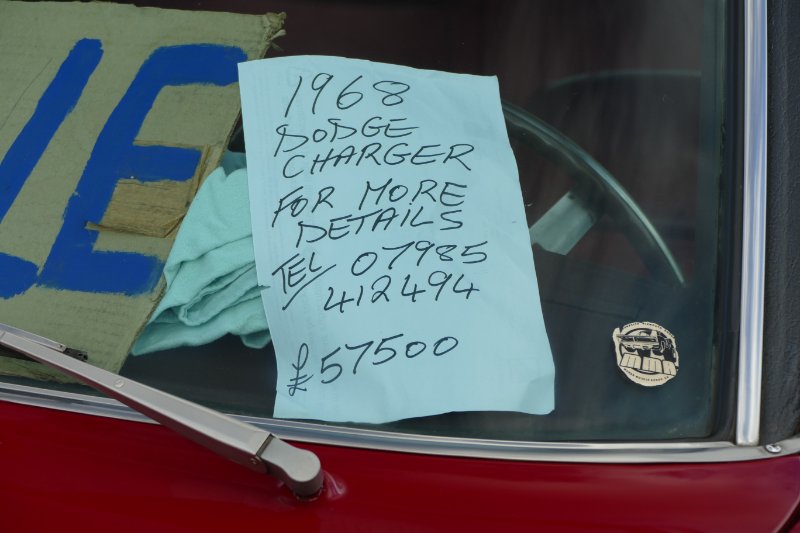 LE
1968
DODGE
CHARGER
FOR MORE
DETAILS
TEL 07985
412494
£57500
MMA